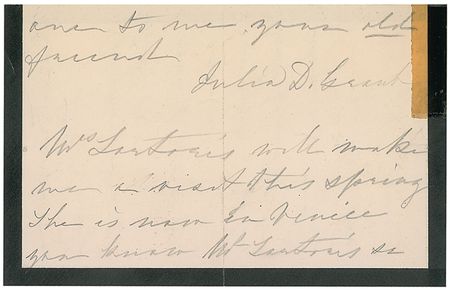 one to me your old
friend
Julia D. Grant
Mrs Sartoris will make
me a visit this spring
She is now in Venice
you know Mr Sartoris is